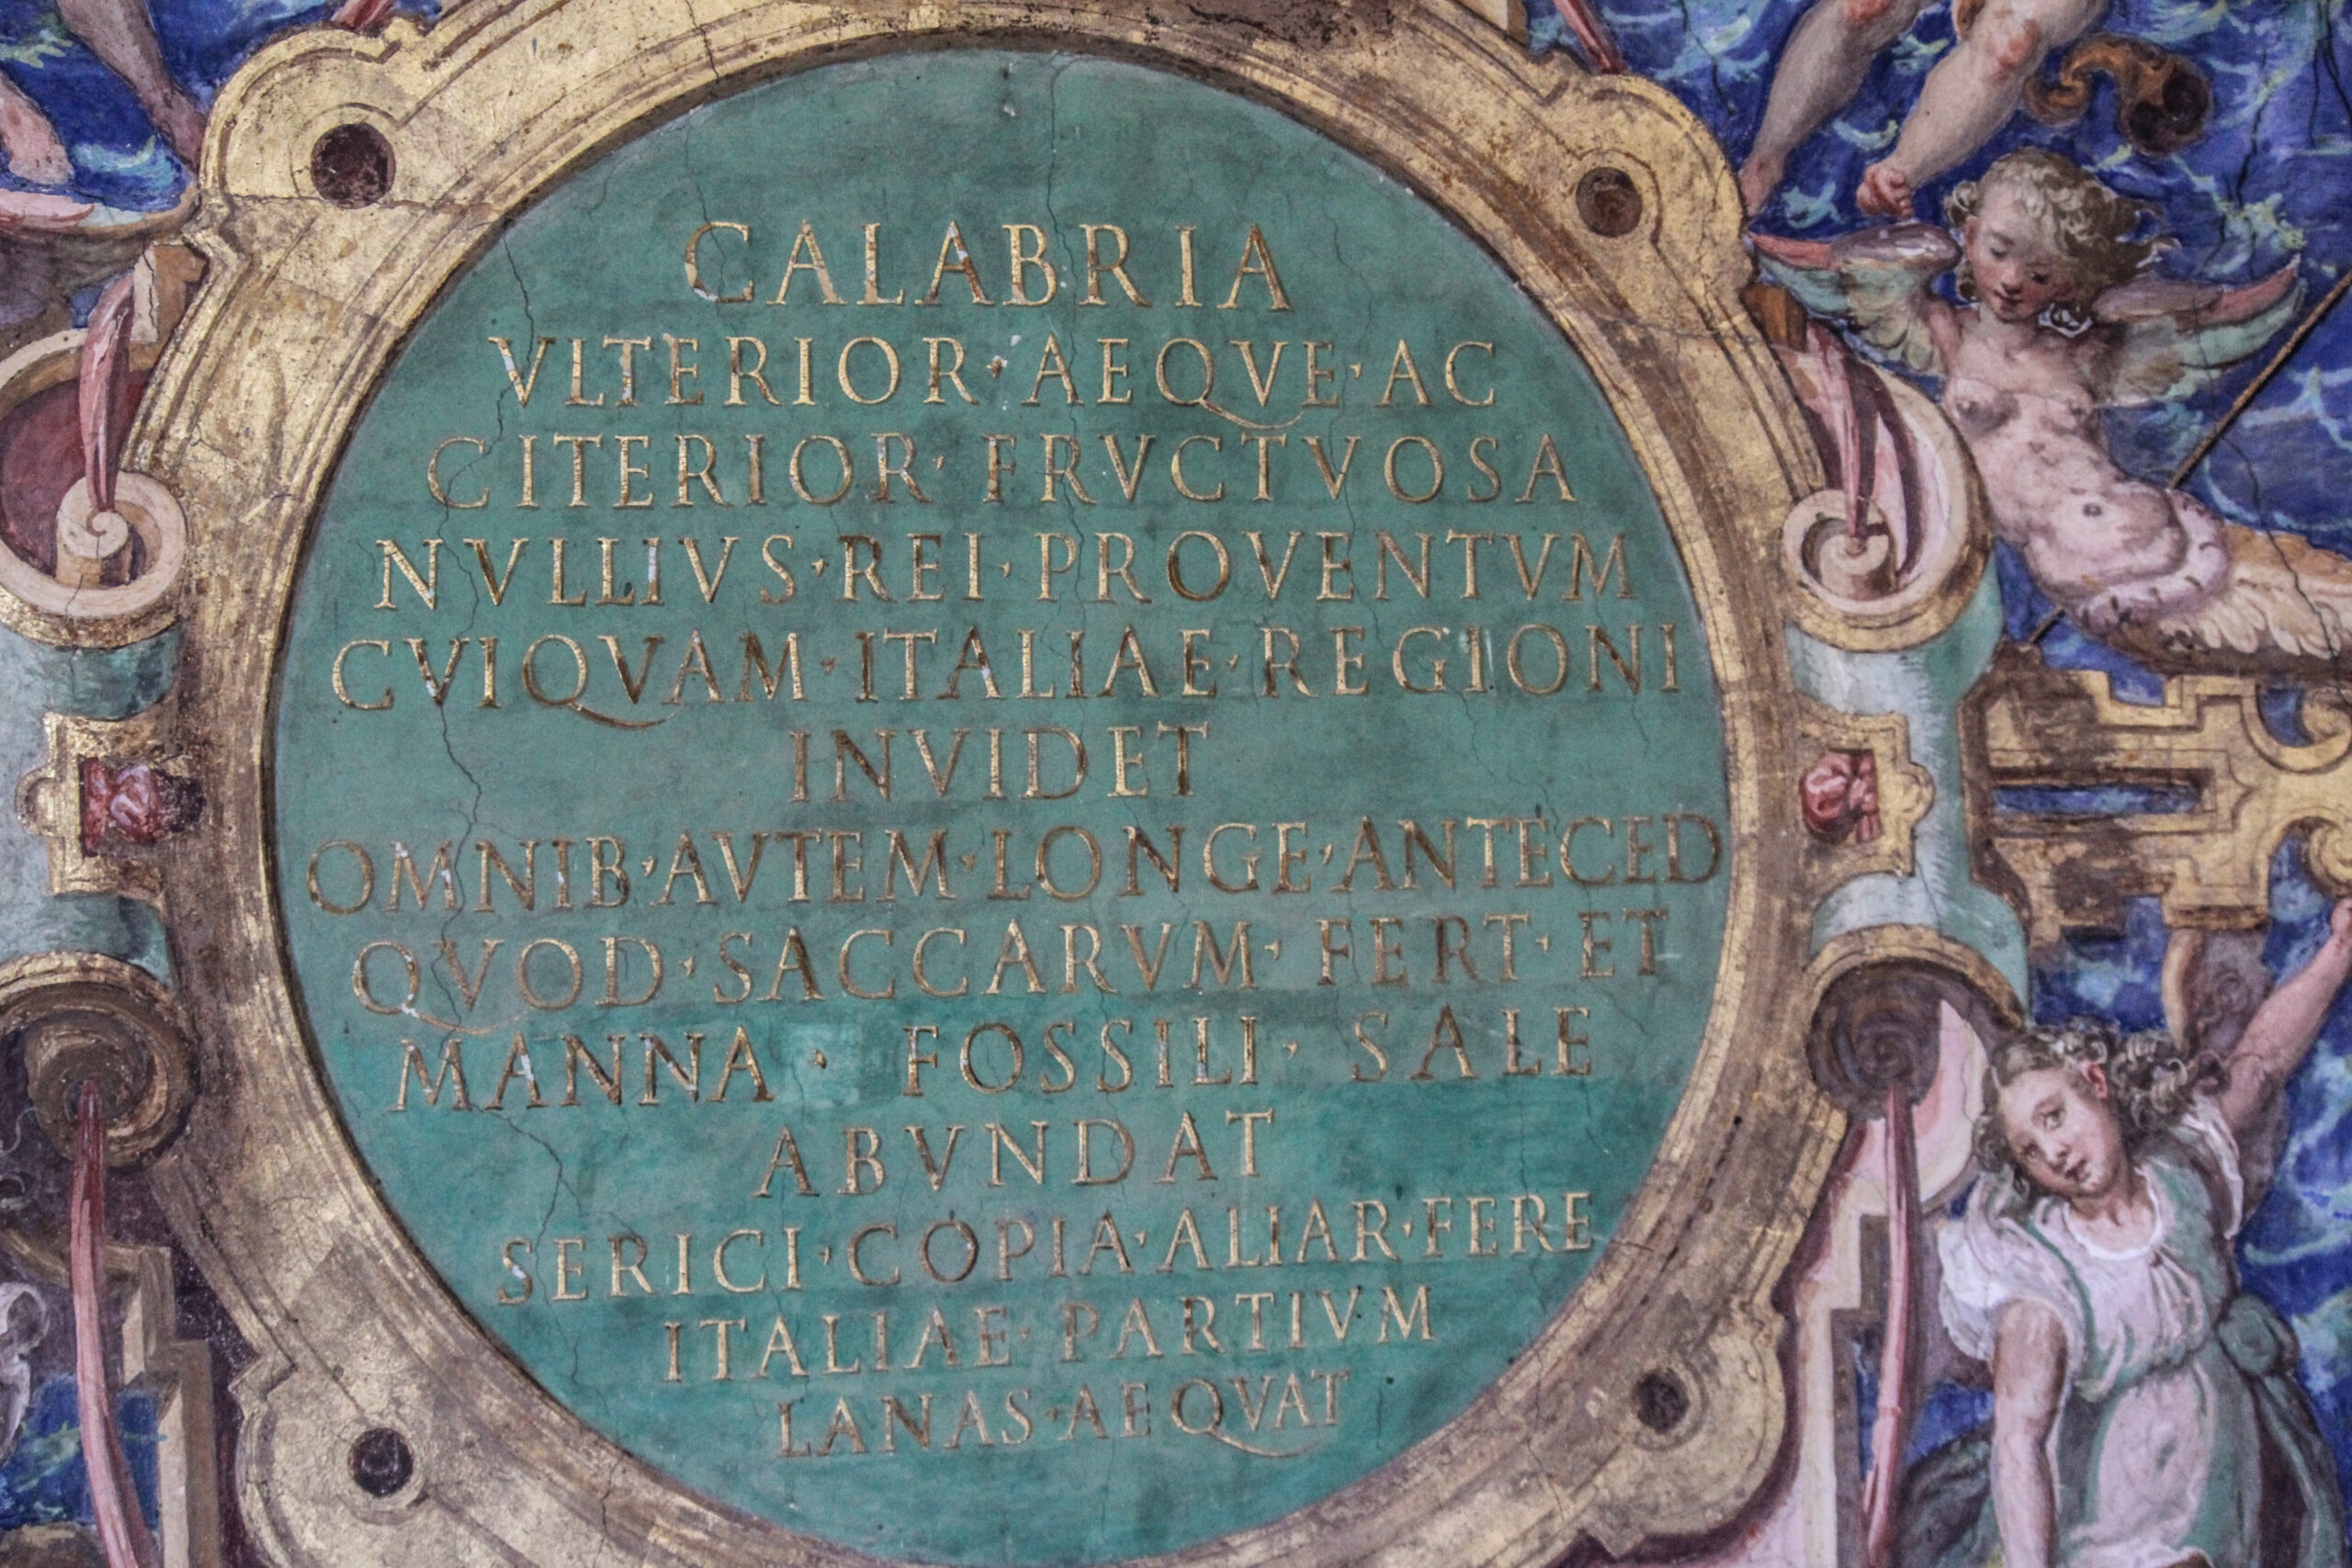 CALABRIA
VLTERIOR · AEQVE · AC
CITERIOR · FRVCTVOSA
NVLLIVS · REI · PROVENTVM
CVIQVAM · ITALIAE · REGIONI
INVIDET
OMNIB · AVTEM · LONGE · ANTECED
QVOD · SACCARVM · FERT · ET
MANNA · FOSSILI · SALE
ABVNDAT
SERICI · COPIA · ALIAR · FERE
ITALIAE · PARTIVM
LANAS · AEQVAT